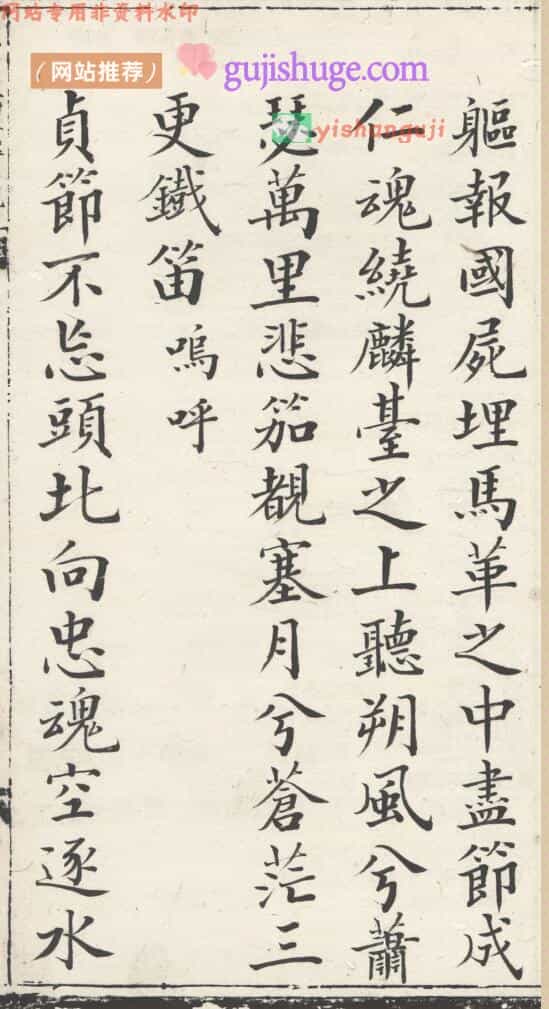 网站专用非资料水印
（网站推荐）
gujishuge.com
yishanguji
軀報國屍埋馬革之中盡節成
仁魂繞麟臺之上聽朔風兮蕭
瑟萬里悲笳覩塞月兮蒼茫三
更鐵笛嗚呼
貞節不忘頭北向忠魂空逐水